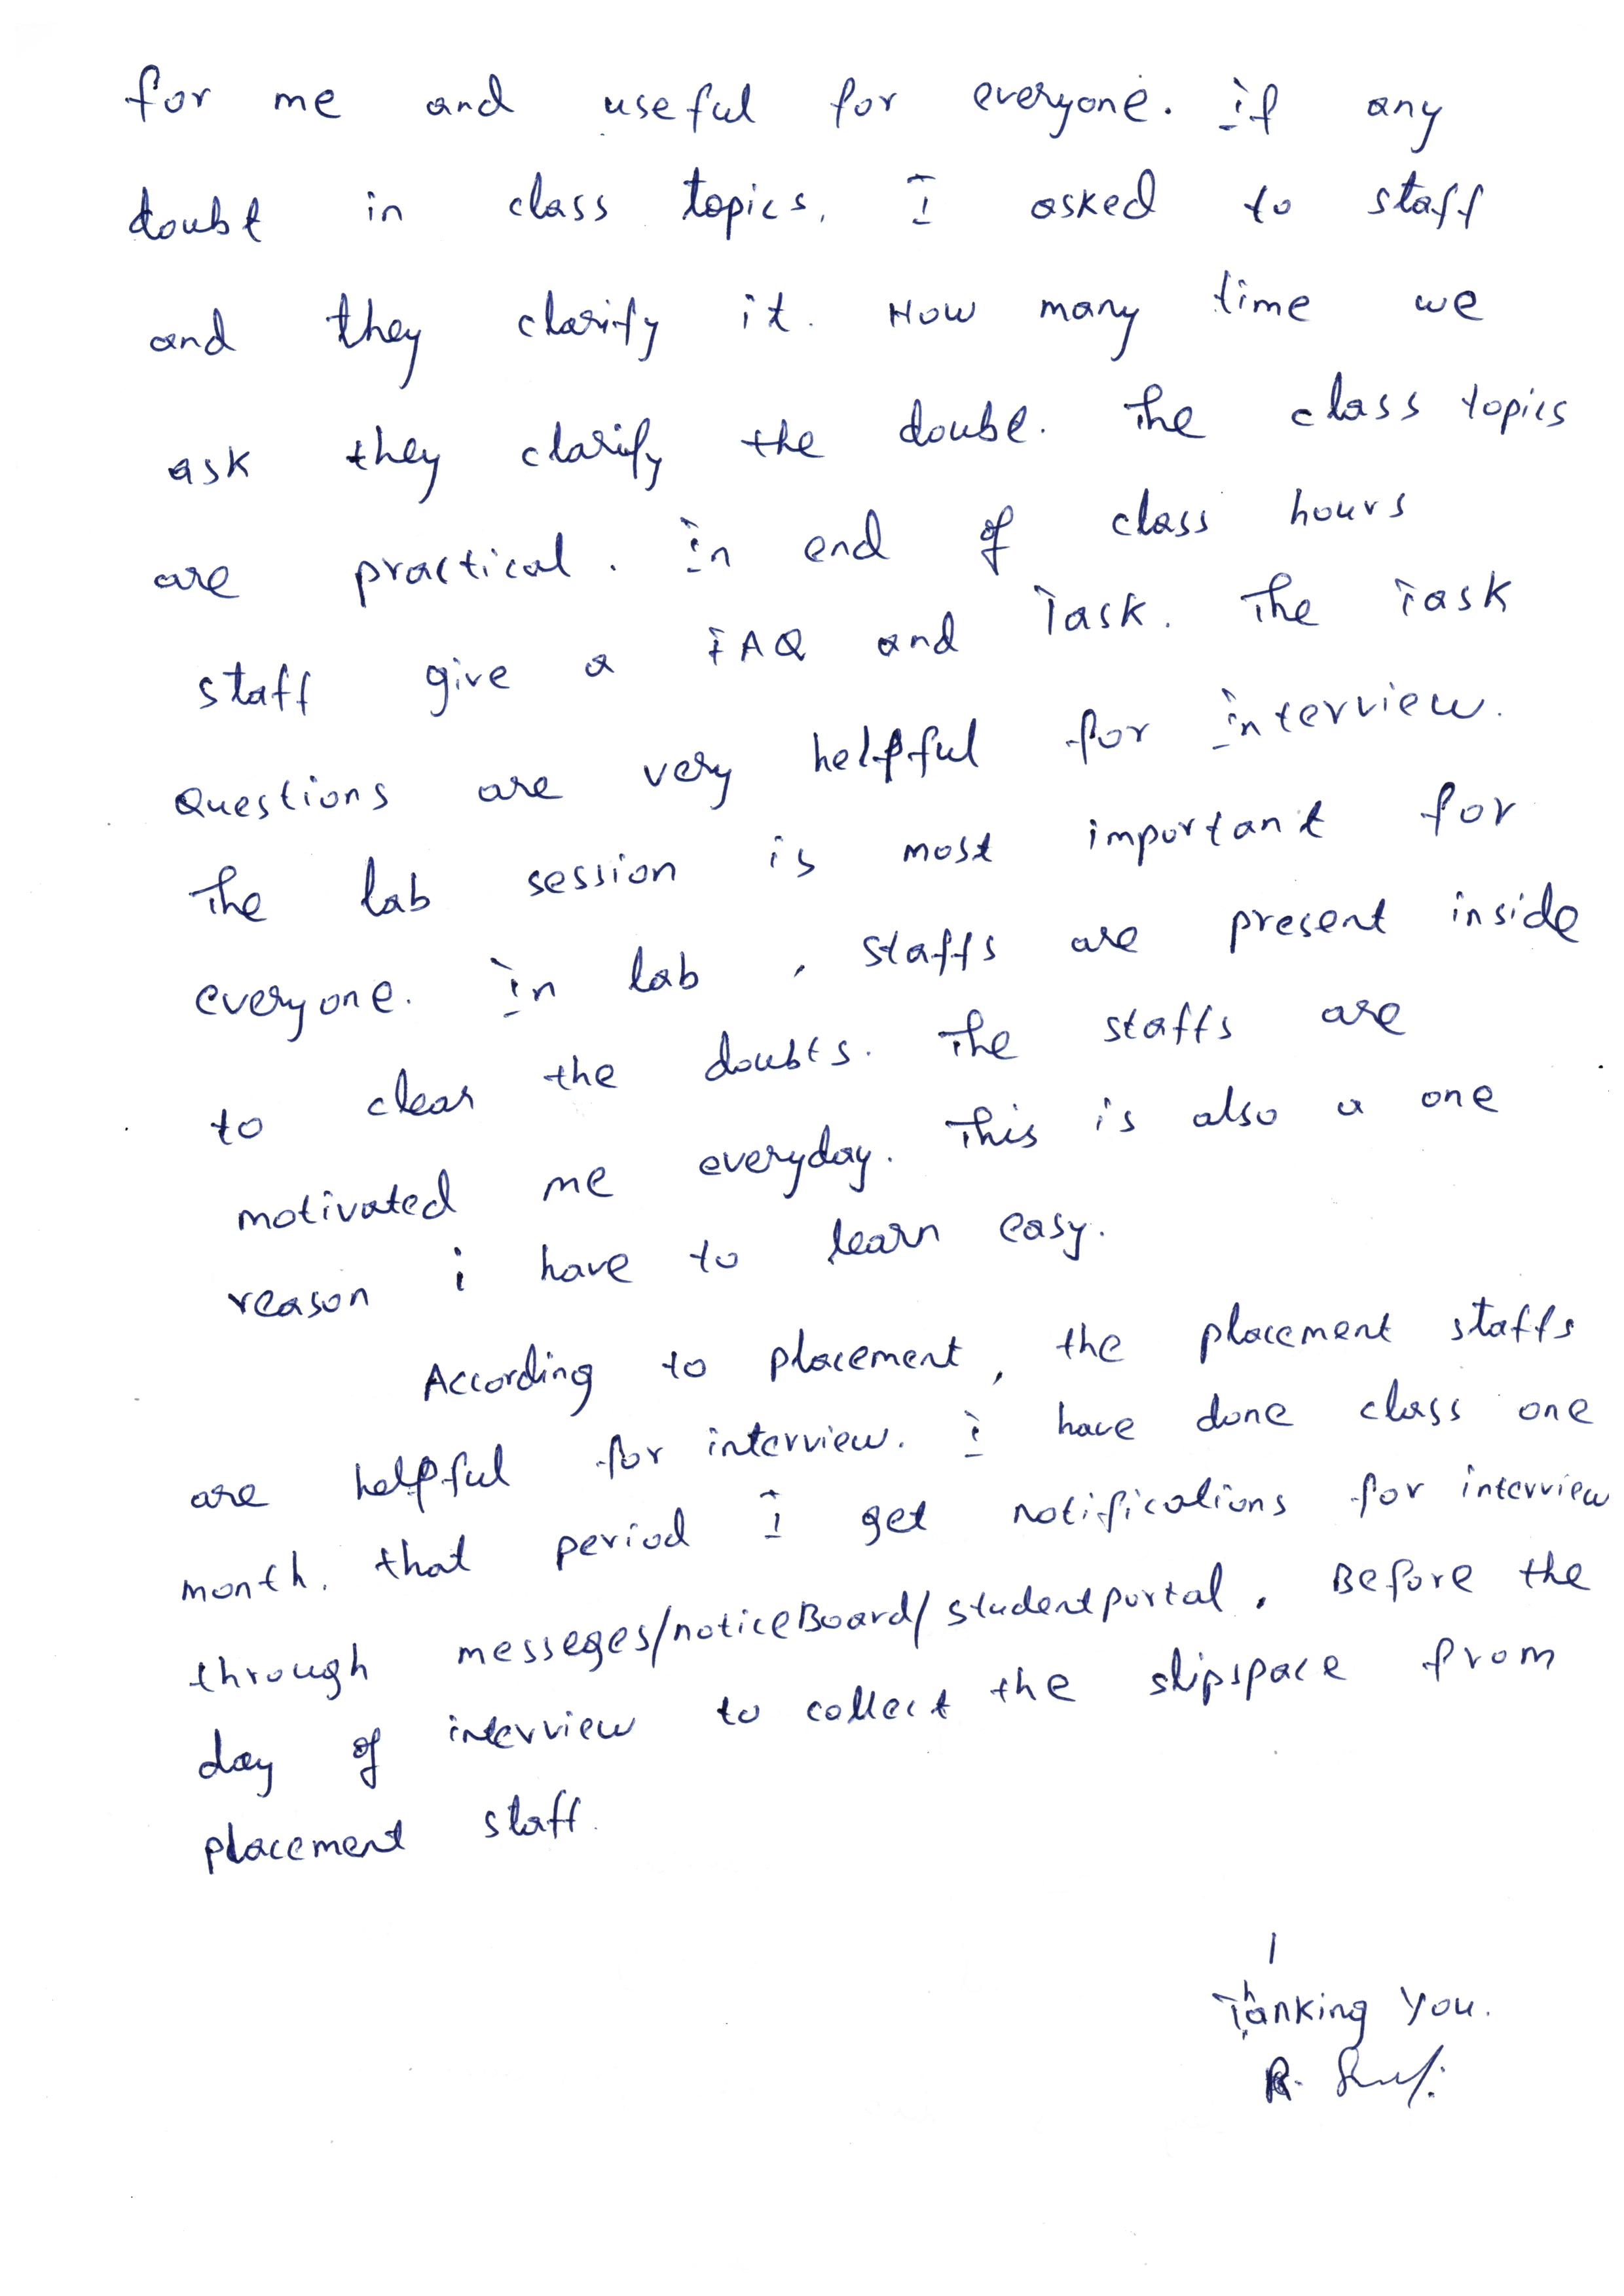 for me and useful for everyone. If any
doubt in class topics, I asked to staff
and they clarify it. How many time we
ask they clarify the doubt. The class topics
are practical. In end of class hours
staff give a FAQ and Task. The Task
Questions are very helpful for interview.
The lab session is most important for
everyone. In lab, staffs are present inside
to clear the doubts. The staffs are
motivated me everyday. This is also a one
reason i have to learn easy.
According to placement, the placement staffs
are helpful for interview. I have done class one
month. that period I get notifications for interview
through messeges/noticeBoard/studentportal. Before the
day of interview to collect the slipspace from
placement staff.
Thanking You.
R.